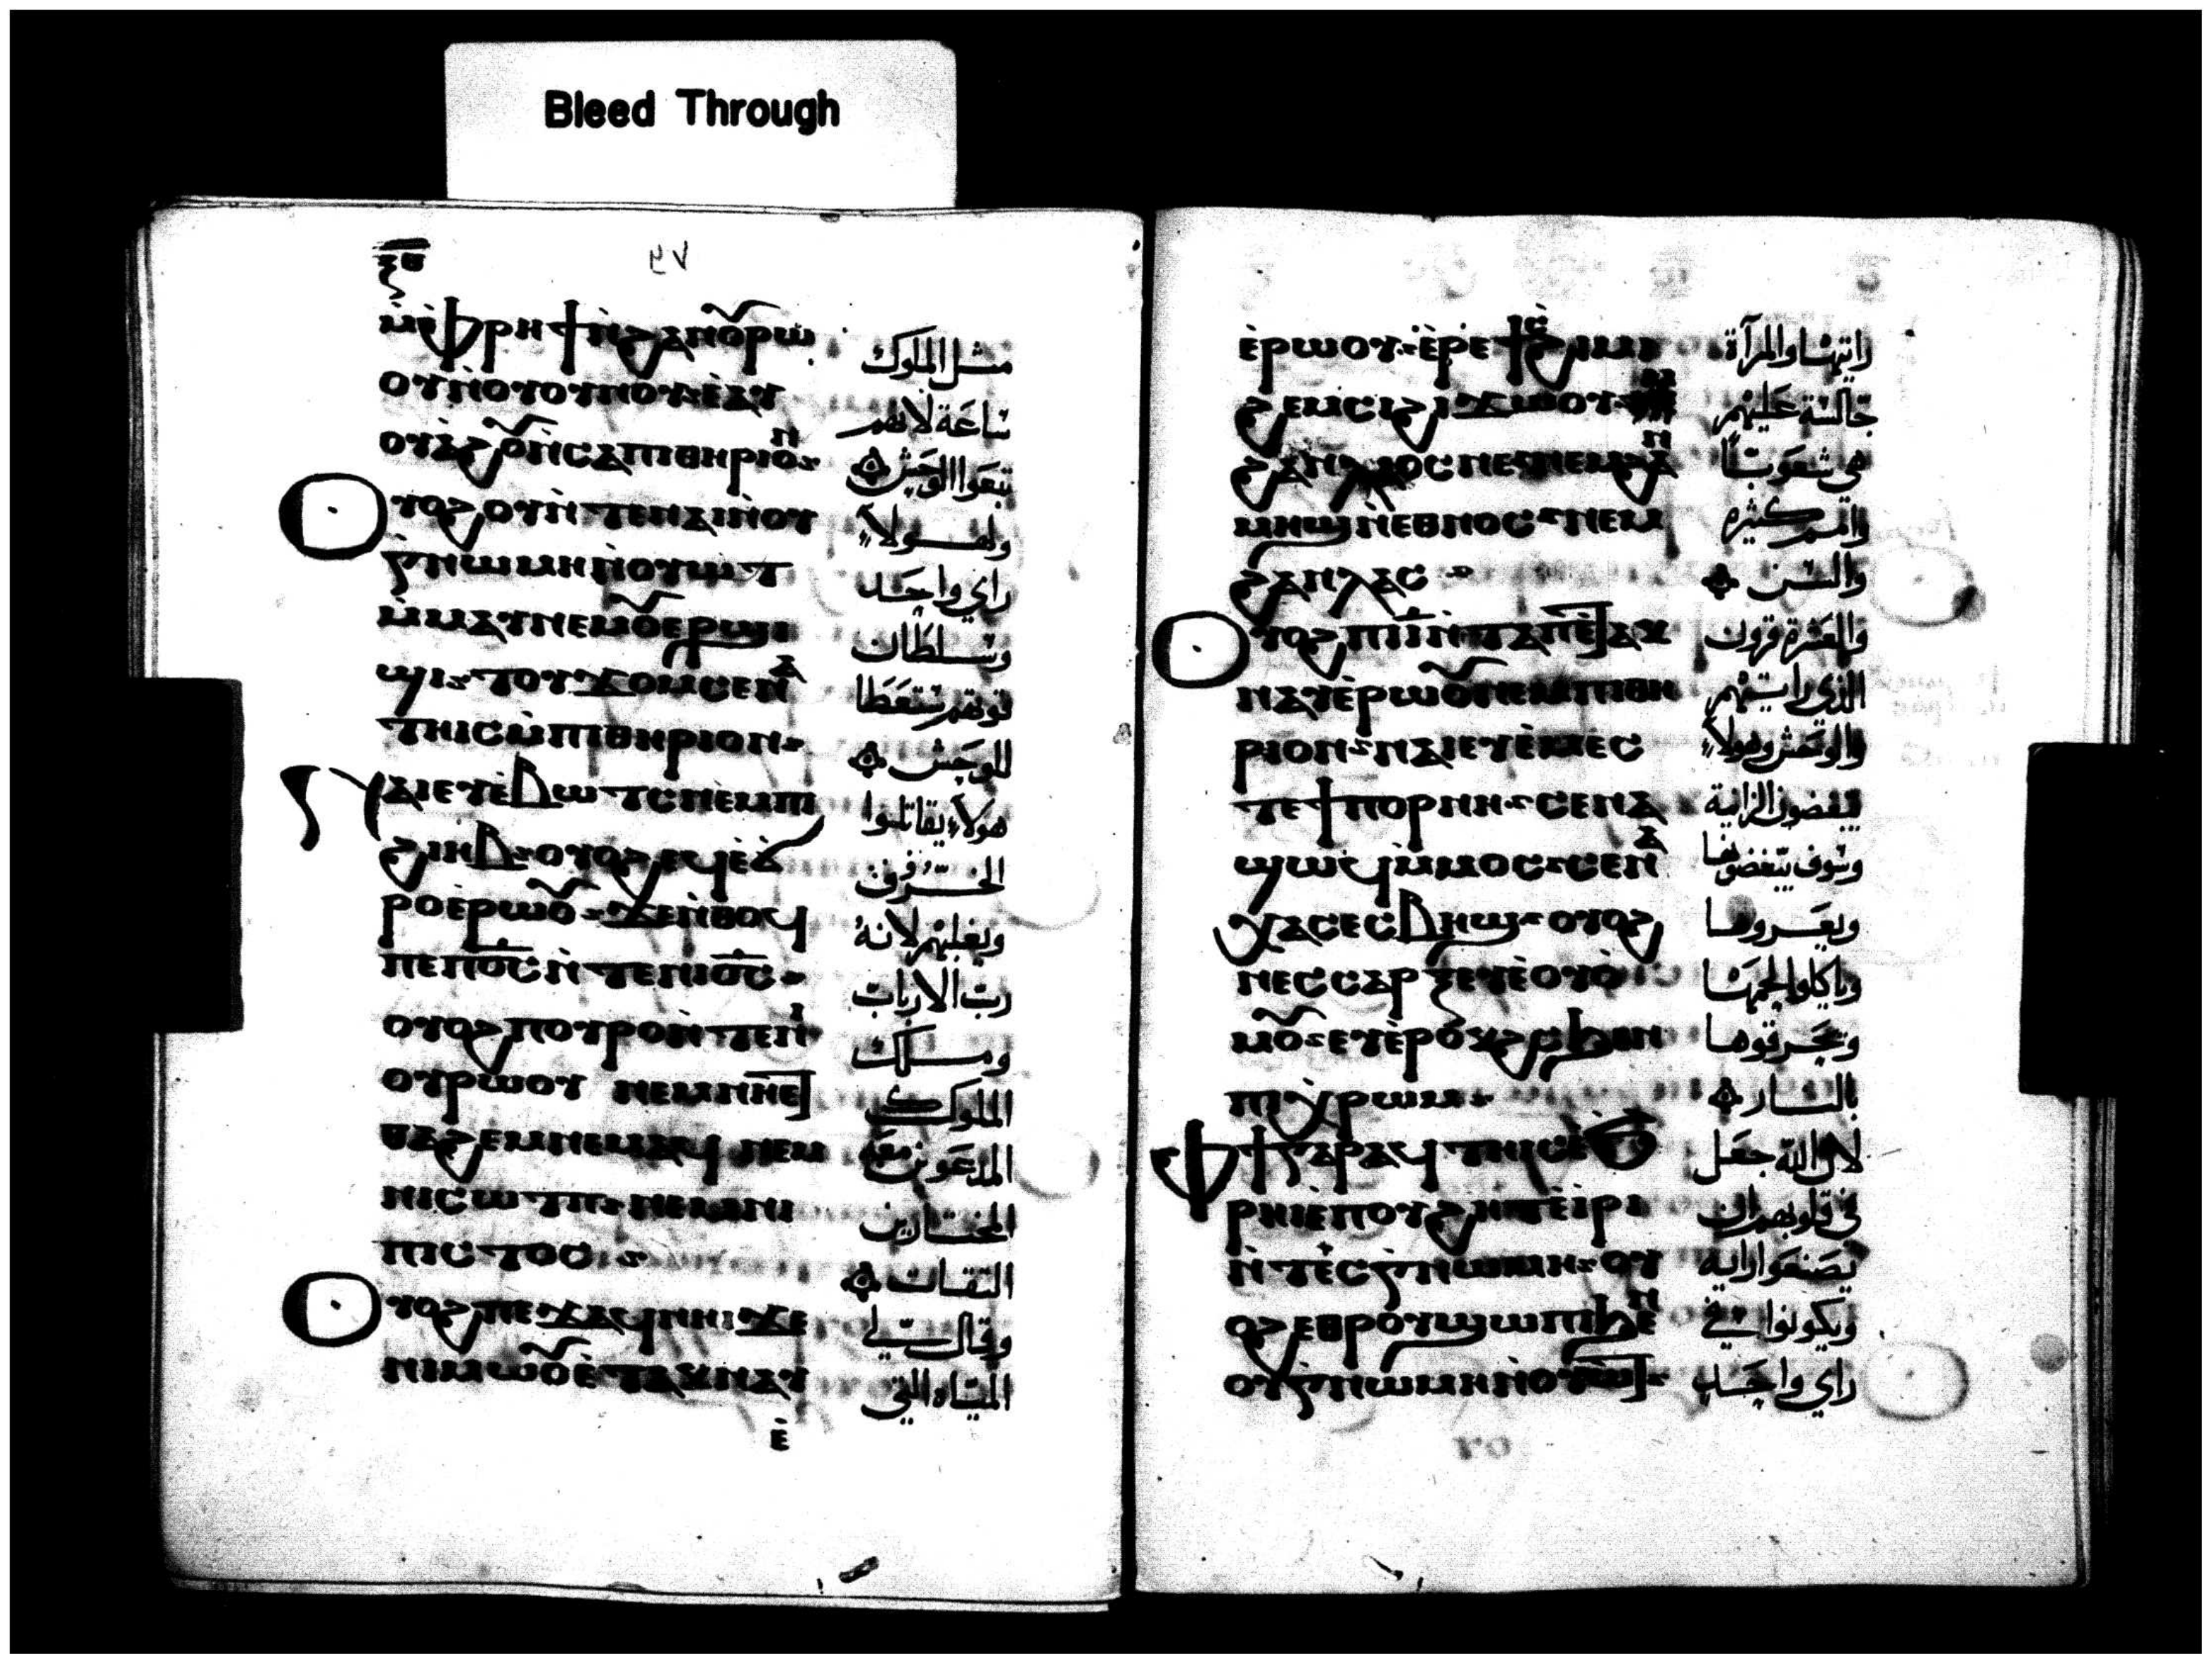 Bleed Through
ⲝⲑ
ⲙ̀ⲫⲣⲏϯⲛ̀ϩⲁⲛⲟⲩⲣⲱ
ⲟⲩⲛ̀ⲟⲩⲟⲩⲛⲟⲩⲉⲁⲩ
ⲟⲩⲁϩⲟⲩⲛ̀ⲥⲁⲡⲓⲑⲏⲣⲓⲟⲛ
ⲟⲩⲟϩⲟⲩⲛ̀ⲧⲉⲛⲁⲓⲛ̀ⲟⲩ
ⲅⲛⲱⲙⲏⲛ̀ⲟⲩⲱⲧ
ⲙ̀ⲙⲁⲩⲛⲉⲙⲟⲩⲉⲣϣⲓ
ϣⲓ ⲧⲟⲩϫⲟⲙⲥⲉⲛⲁ
ⲧⲏⲓⲥⲙ̀ⲡⲓⲑⲏⲣⲓⲟⲛ
ⲛⲁⲓⲉⲩⲉ̀ⲃⲱⲧⲥⲛⲉⲙⲡ
ϩⲓⲏⲃ ⲟⲩⲟϩⲉϥⲉ̀ϭ
ⲣⲟⲉ̀ⲣⲱⲟⲩ ϫⲉⲛ̀ⲑⲟϥ
ⲡⲉⲡⲟ̅ⲥ̅ⲛ̀ⲧⲉⲛⲓⲟ̅ⲥ̅
ⲟⲩⲟϩⲡⲟⲩⲣⲟⲛ̀ⲧⲉⲛⲓ
ⲟⲩⲣⲱⲟⲩ ⲛⲉⲙⲛⲏⲉⲧ
ⲑⲁϩⲉⲙⲛⲉⲙⲁϥ ⲛⲉⲙ
ⲛⲓⲥⲱⲧⲡ ⲛⲉⲙⲛⲓ
ⲡⲓⲥⲧⲟⲥ
ⲟⲩⲟϩⲡⲉϫⲁϥⲛⲏⲓϫⲉ
ⲛⲓⲙⲱⲟⲩⲉ̀ⲧⲁⲕⲛⲁⲩ
ⲉ̀
مثل الملوك
ساعة لانهم
تبعوا الوحش
ولهولاء
راي واحد
وسلطان
قوتهم ستعطا
للوحش
هولاء يقاتلوا
الخروف
ويغلبهم لانه
رب الارباب
وملك
الملوك
المدعوين معه
المختارين
الثقات
وقال لي
المياه التي
ⲉ̀ⲣⲱⲟⲩ ⲉ̀ⲣⲉϯⲥϩⲓⲙⲓ
ϩⲉⲙⲥⲓϩⲓϫⲱⲟⲩ
ϩⲁⲛⲗⲁⲟⲥⲛⲉ ⲛⲉⲙϩⲁⲛ
ⲙⲏϣⲛ̀ⲉⲑⲛⲟⲥ ⲛⲉⲙ
ϩⲁⲛⲗⲁⲥ
ⲟⲩⲟϩⲡⲓⲓ̅ⲛ̀ⲧⲁⲡⲉ̀ⲧⲁⲕ
ⲛⲁⲩⲉ̀ⲣⲱⲟⲩⲛⲉⲙⲡⲓⲑⲏ
ⲣⲓⲟⲛ ⲛⲁⲓⲉⲩⲉ̀ⲙⲉⲥ
ⲧⲉϯⲡⲟⲣⲛⲏ ⲥⲉⲛⲁ
ϣⲱϥⲙ̀ⲙⲟⲥ ⲥⲉⲛⲁ
ⲭⲁⲥⲉⲥⲃⲏϣ ⲟⲩⲟϩ
ⲛⲉⲥⲥⲁⲣⲝⲉⲩⲉ̀ⲟⲩⲟ̀
ⲙⲟⲩ ⲉⲩⲉ̀ⲣⲟⲕϩⲥϧⲉⲛ
ⲡⲓⲭⲣⲱⲙ
ⲫϯⲅⲁⲣⲁϥⲧⲏⲓⲥⲉ̀ϧ
ⲣⲏⲓⲉ̀ⲡⲟⲩϩⲏⲧⲉ̀ⲓⲣⲓ
ⲛ̀ⲧⲉϥⲅⲛⲱⲙⲏ ⲟⲩ
ⲟϩⲉⲑⲣⲟⲩϣⲱⲡⲓϧⲉⲛ
ⲟⲩⲅⲛⲱⲙⲏⲛ̀ⲟⲩⲱⲧ
رايتها والمرآة
جالسة عليهم
هي شعوبًا
وامم كثيره
والسن
والعشرة قرون
الذي رايتهم
والوحش وهولاء
يبغضون الزانية
وسوف يبغضونها
ويعروها
وياكلوا لحمها
ويحرقوها
بالنار
لان الله جعل
في قلوبهم ان
يصنعوا رايه
ويكونوا في
راي واحد